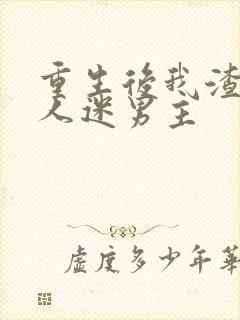 重生后我渣
人迷男主
虚度多少年華